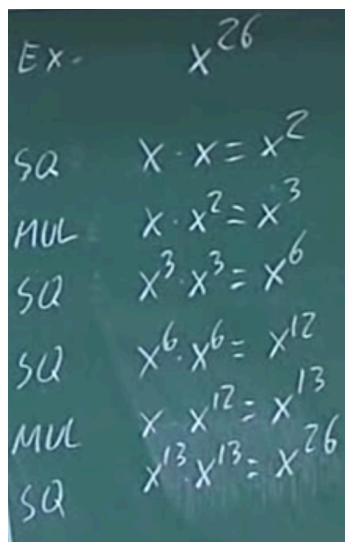 Ex. x^26
SQ x · x = x^2
MUL x · x^2 = x^3
SQ x^3 · x^3 = x^6
SQ x^6 · x^6 = x^12
MUL x · x^12 = x^13
SQ x^13 · x^13 = x^26